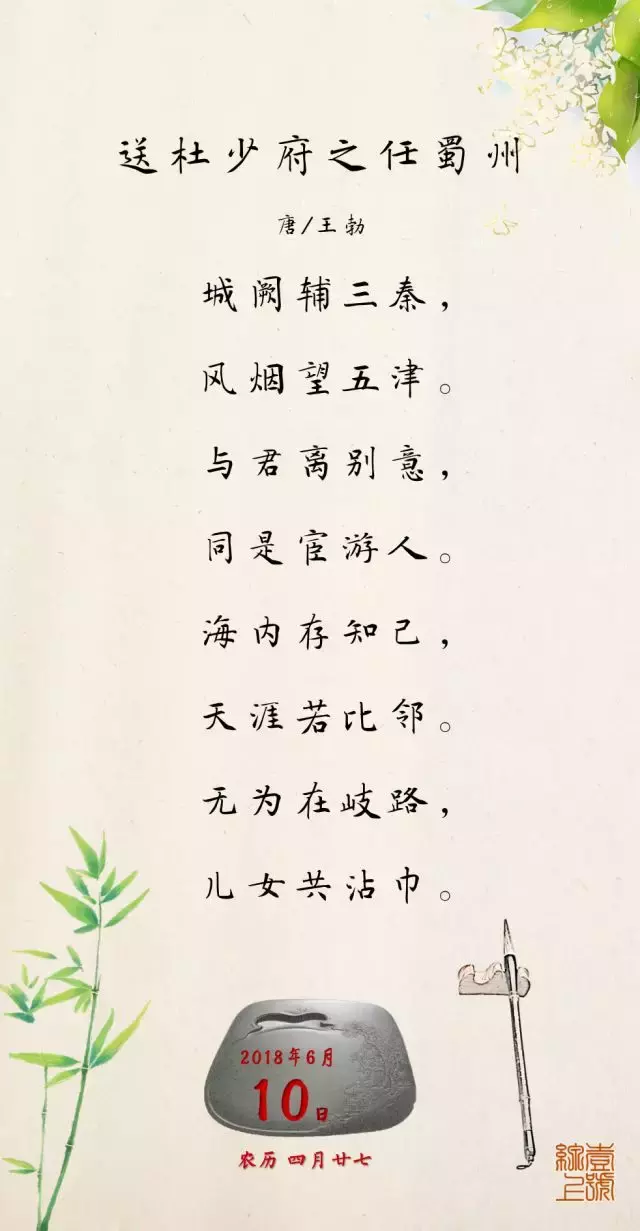 送杜少府之任蜀州
唐/王勃
城阙辅三秦，
风烟望五津。
与君离别意，
同是宦游人。
海内存知己，
天涯若比邻。
无为在歧路，
儿女共沾巾。
2018年6月
10日
农历 四月廿七
壹號
綜上